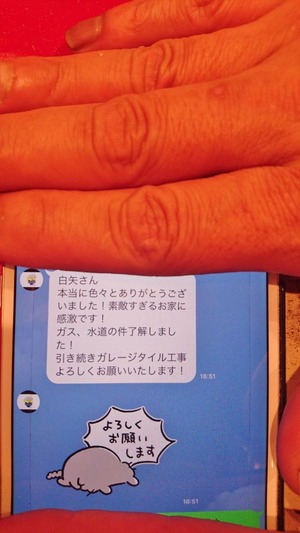 白矢さん
本当に色々とありがとうござ
いました！素敵すぎるお家に
感激です！
ガス、水道の件了解しまし
た！
引き続きガレージタイル工事
よろしくお願いいたします！
16:51
よろしく
お願い
します
16:51